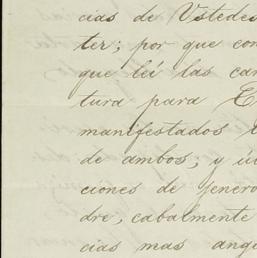 cias de Ustedes
ter; por que con
que leí las car
tura para E
manifestados
de ambos; y ú
ciones de jenero
dre, cabalmente
cias mas angu